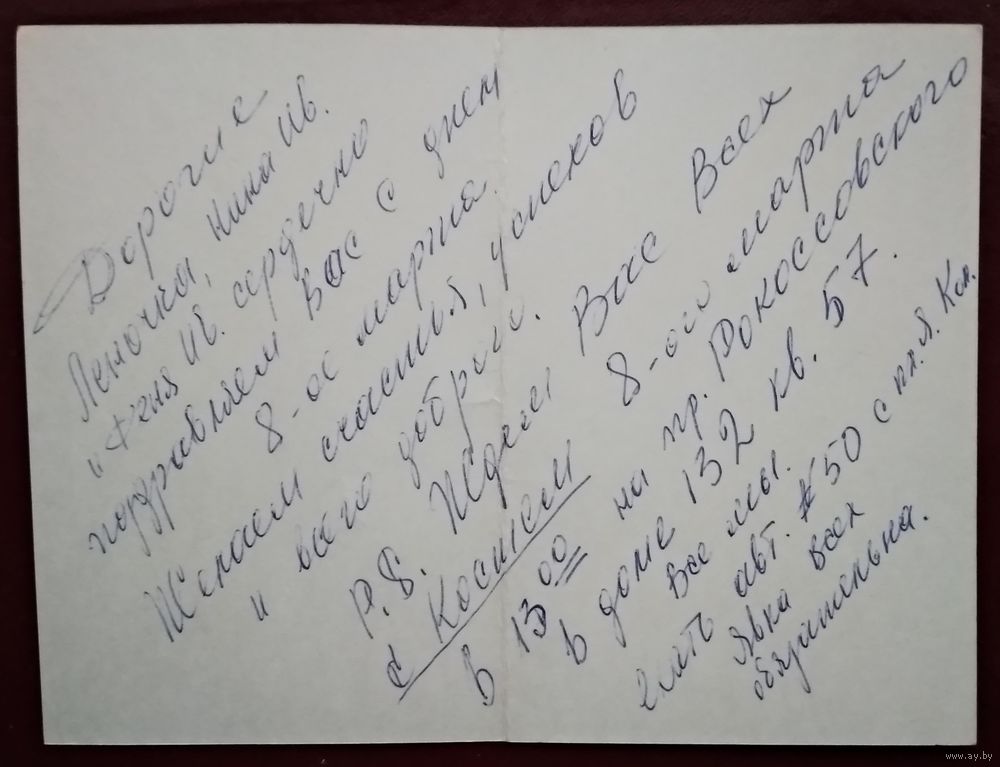 Дорогие
Леночка, Нина Ив.
и Феня Ив. сердечно
поздравляем Вас с днем
8-ое марта.
Желаем счастья, успехов
и всего доброго.
P.S. Ждем Вас Всех
с Костей 8-ого марта
в 13 00 на пр. Рокоссовского
в доме 132 кв. 57.
Все мы.
ехать авт. № 50 с пл. Я. Кол.
Явка всех
обязательна.
www.ay.by